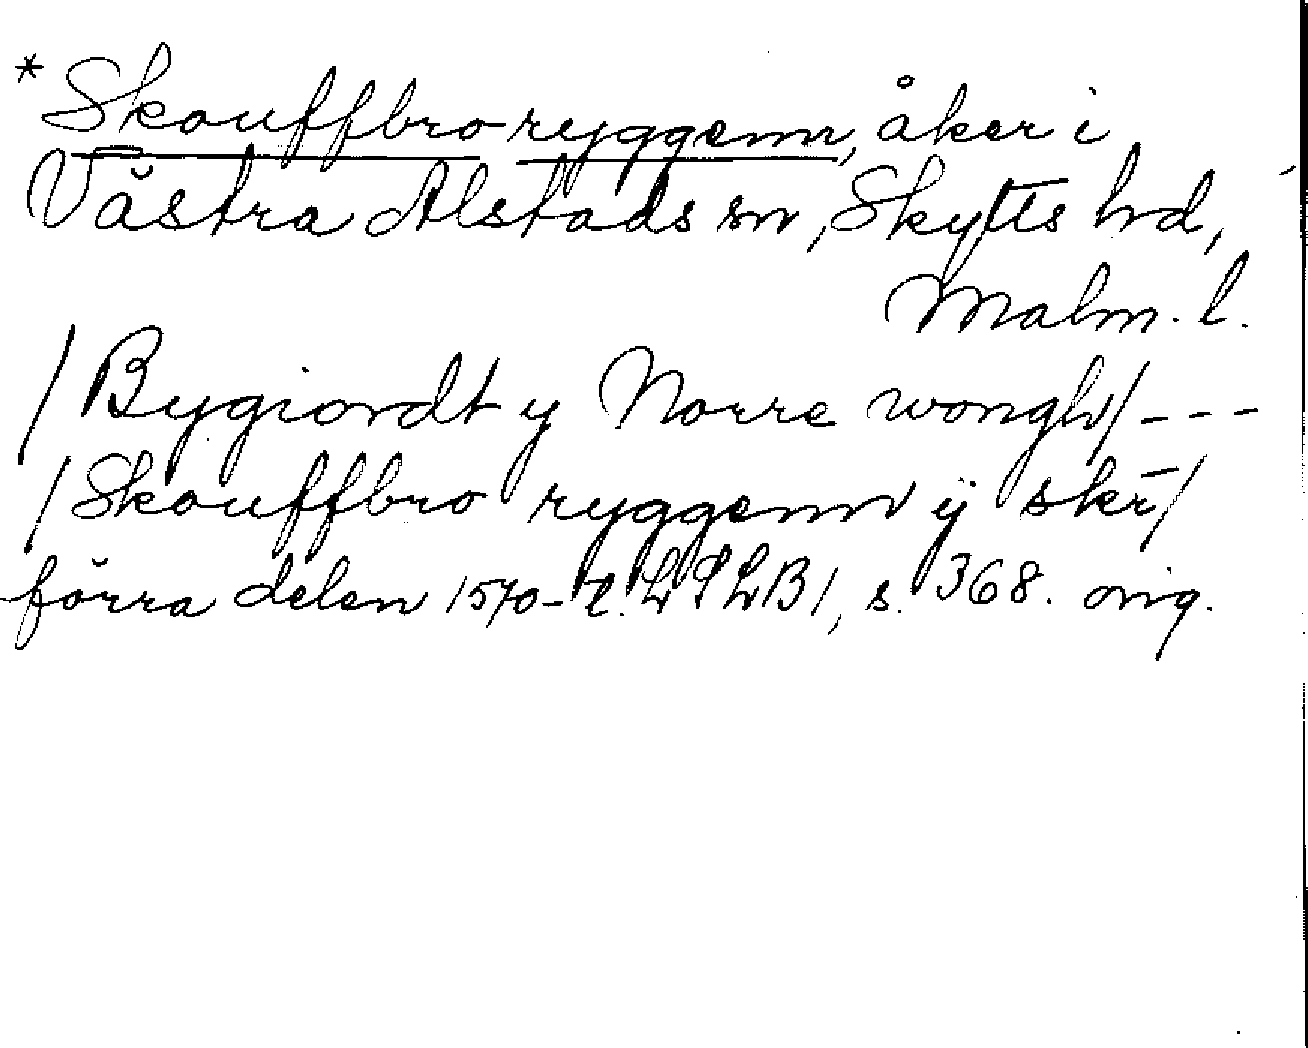 *Skouffbro ryggenn, åker i
Västra Alstads sn, Skytts hd,
Malm. l.
/Bygiordt y Norre wongh/ - - -
/Skouffbro ryggenn ÿ skr̄/
förra delen 1570-t. LSLB1, s. 368. orig.